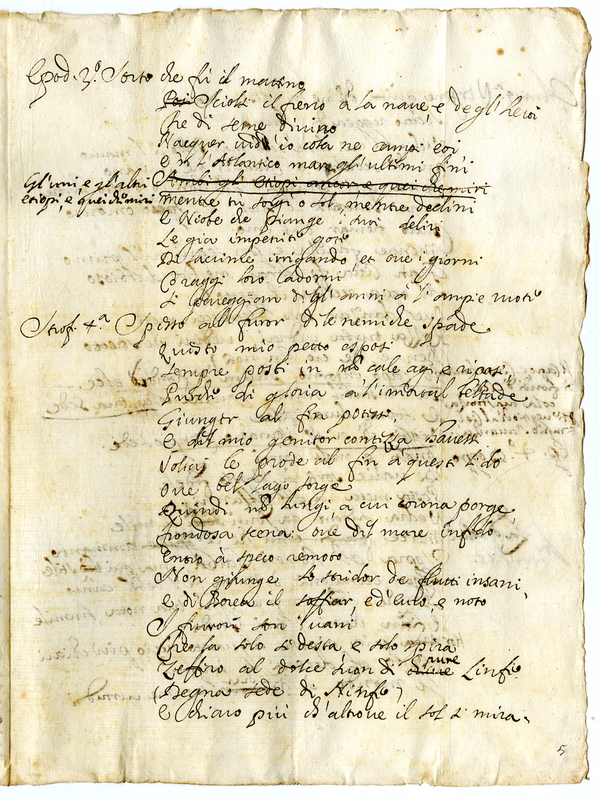 Epod. 3º. Sorto che fù il matino
Poi Sciolsi il freno a la nave, e degl'Heroi
Che di seme divino
Nacquer vidi io cola ne campi eoi
E ne l'Atlantico mare gl'ultimi fini
Ambi gl'etiopi ancor e quei che miri
Gl'uni, e gl'altri
etiopi, e quei che miri
mentre tu sorgi o sol, mentre declini
E Niobe che piange i suoi
Le già impetrite gote
Di lacrime irrigando, et ove i giorni
Coraggi loro adorni
degl'anni a l'ampie rote
Strof. 4.ª Spesso al furor de le nemiche spade
Questo mio petto esposi
Sempre posti in non cale agi, e riposi
Purche di gloria a l'immortal
Giunger al fin potessi
E del mio genitor contezza havessi
Volsi le prode al fin a questi lido
Ove bel lago sorge
Quindi non lungi a cui corona porge
frondosa scena: ove del mare infido
Entro à speco remoto
Non giunge lo stridor de flutti insani
E di Borea il soffiar, ed'euro, e noto
I furori son vani
Che sa solo si desta e solo spira
Zeffiro al dolce suon di chiare pure Linfe
(Degna sede di Ninfe)
E chiaro più ch'altrove il sol si mira.
5